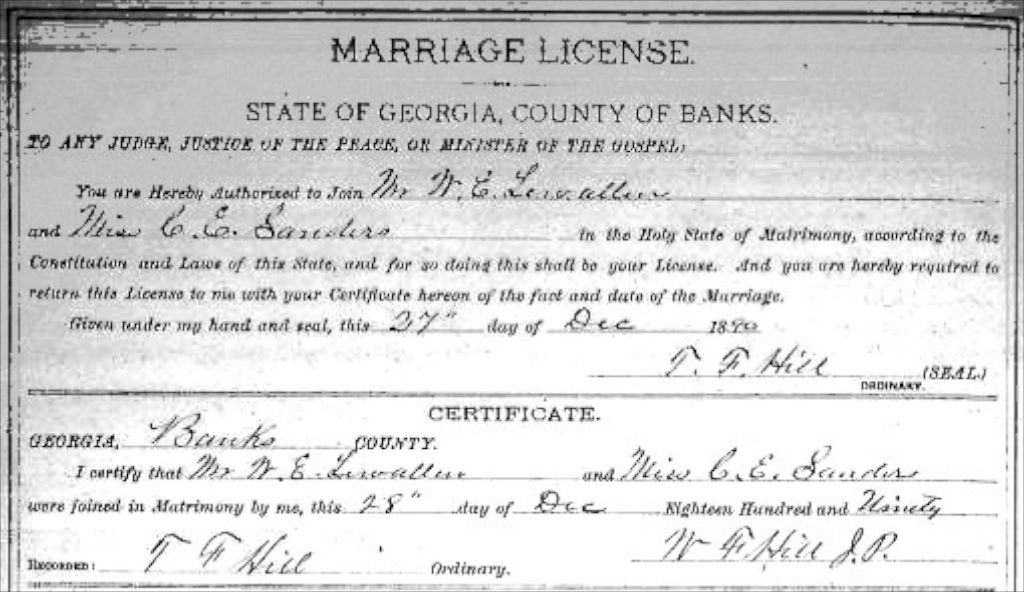 MARRIAGE LICENSE.
STATE OF GEORGIA, COUNTY OF BANKS.
TO ANY JUDGE, JUSTICE OF THE PEACE, OR MINISTER OF THE GOSPEL:
You are Hereby Authorized to Join Mr W. E. Lewallen
and Miss C. E. Sanders in the Holy State of Matrimony, according to the
Constitution and Laws of this State, and for so doing this shall be your License. And you are hereby required to
return this License to me with your Certificate hereon of the fact and date of the Marriage.
Given under my hand and seal, this 27" day of Dec 1890
T. F. Hill (SEAL)
ORDINARY.
CERTIFICATE.
GEORGIA, Banks COUNTY.
I certify that Mr W. E. Lewallen and Miss C. E. Sanders
were joined in Matrimony by me, this 28" day of Dec Eighteen Hundred and Ninety
W F Hill J. P.
RECORDED: T F Hill Ordinary.